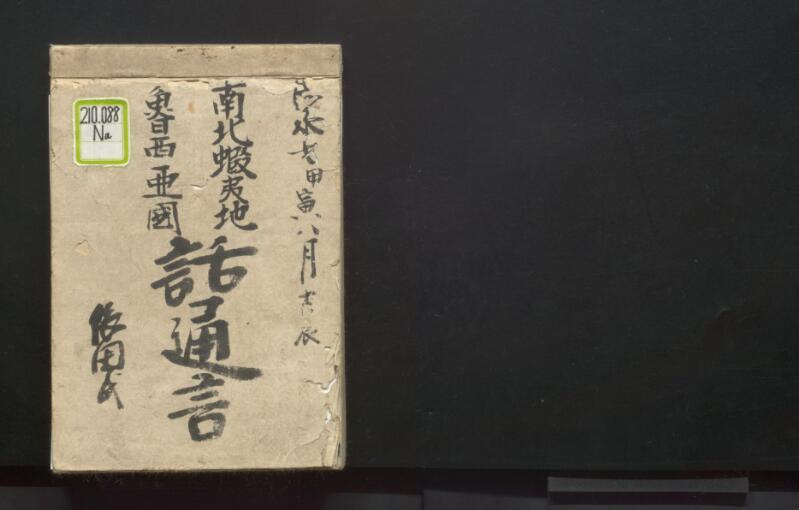 嘉永七甲寅八月吉辰
南北蝦夷地
魯西亜國
話通言
依田氏
210.088
Na